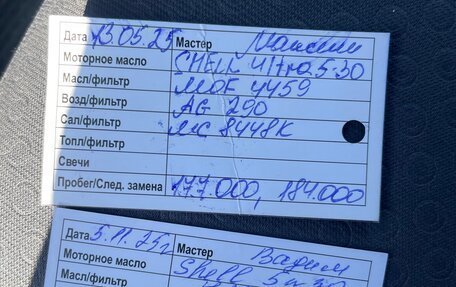 Дата 13.05.25 Мастер Максим
Моторное масло SHELL Ultra.5-30
Масл/фильтр MOF 4459
Возд/фильтр AG 290
Сал/фильтр МС 8448К
Топл/фильтр
Свечи
Пробег/След. замена 177.000, 184.000
Дата 5.11.25г Мастер Вадим
Моторное масло Shell 5w30
Масл/фильтр